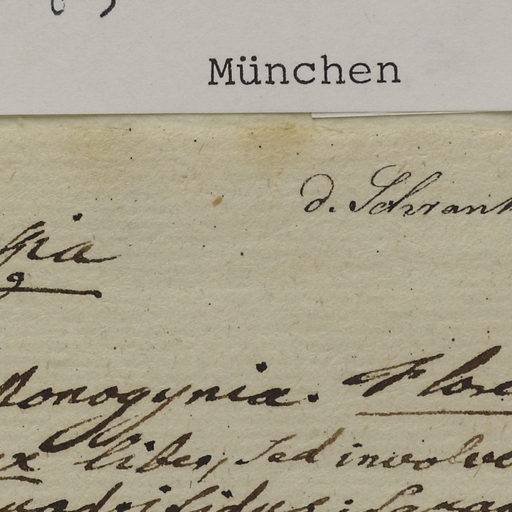 München
d. Schrank
pia
Monogynia. Flore
ex liber, sed involve
quadrifidus: